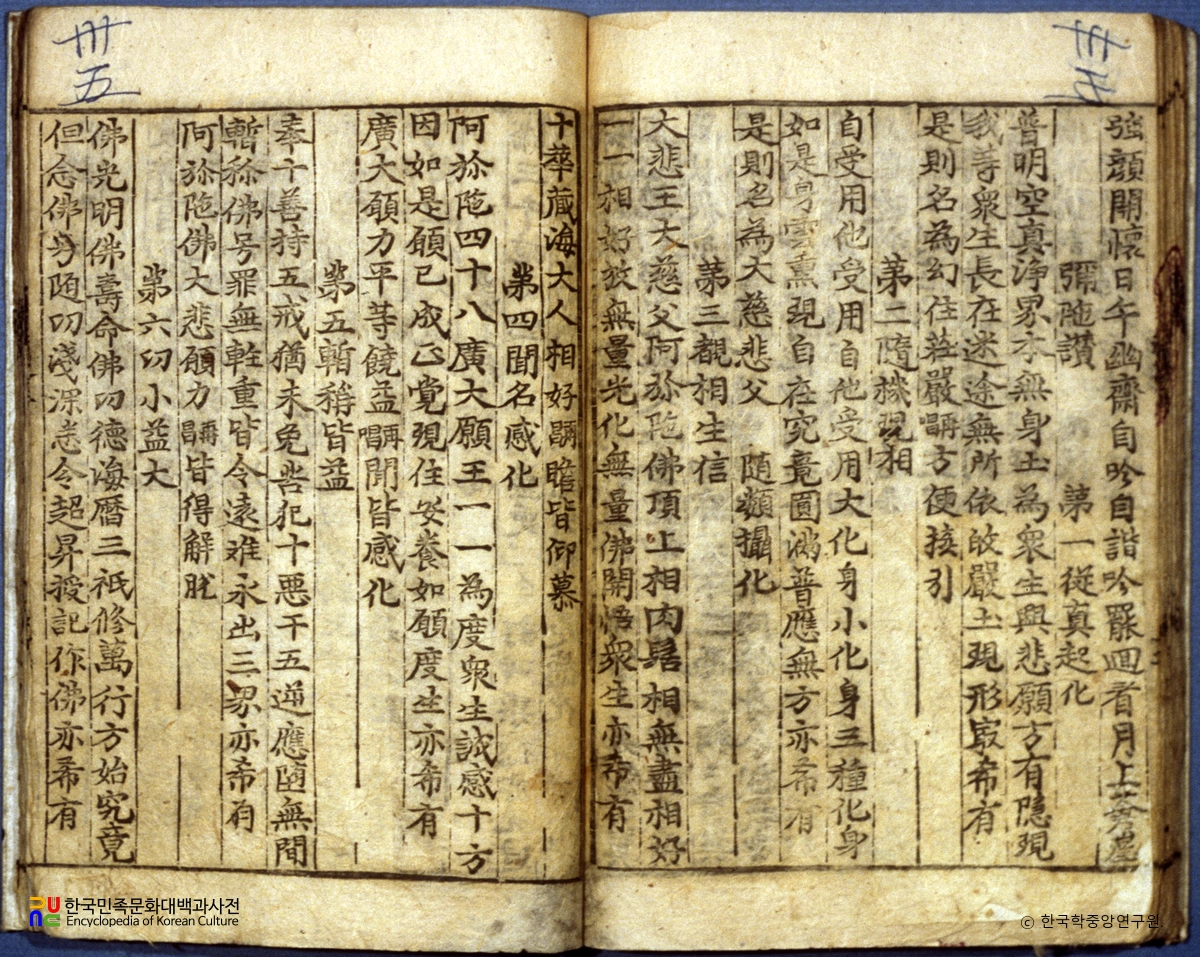 卅五
強顔開懷日午幽齋自吟自諧吟罷回看月上
彌陁讃 第一從真起化
普明空真淨界本無身土為衆生興悲願方有隠現
我等衆生長在迷途無所依敀嚴土現形冣希有
是則名為幻住荘嚴再唱方便接引
第二隨機現相
自受用他受用自他受用大化身小化身三種化身
如是身雲熏現自在究竟圎滿普應無方亦希有
是則名為大慈悲父 随類攝化
第三觀相生信
大悲王大慈父阿弥陁佛頂上相肉髻相無盡相好
一一相好放無量光化無量佛開悟衆生亦希有
卅五
十華藏海大人相好再唱瞻皆仰慕
第四聞名感化
阿弥陁四十八廣大願王一一為度衆生誠感十方
因如是願已成正覺現住安養如願度生亦希有
廣大願力平等饒益再唱聞皆感化
第五暫稱皆益
奉十善持五戒猶未免苦犯十惡干五逆應堕無間
暫稱佛号罪無軽重皆令遠难永出三界亦希有
阿弥陁佛大悲願力再唱皆得解脱
第六功小益大
佛光明佛壽命佛功德海曆三祇修萬行方始究竟
但念佛号随功淺深悉令超昇授記作佛亦希有
한국민족문화대백과사전
Encyclopedia of Korean Culture
ⓒ 한국학중앙연구원